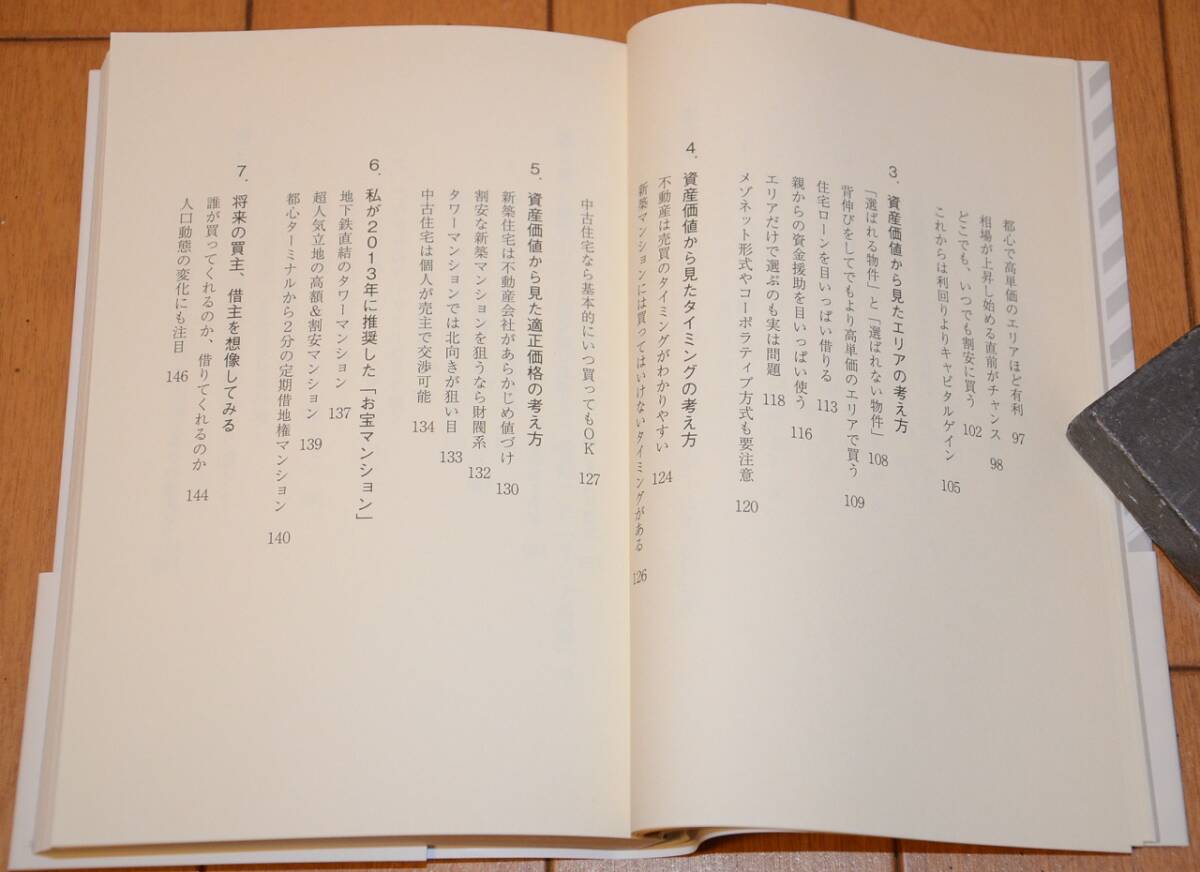 都心で高単価のエリアほど有利 97
相場が上昇し始める直前がチャンス 98
どこでも、いつでも割安に買う 102
これからは利回りよりキャピタルゲイン 105
3. 資産価値から見たエリアの考え方
「選ばれる物件」と「選ばれない物件」 108
背伸びをしてでもより高単価のエリアで買う 109
住宅ローンを目いっぱい借りる 113
親からの資金援助を目いっぱい使う 116
エリアだけで選ぶのも実は問題 118
メゾネット形式やコーポラティブ方式も要注意 120
4. 資産価値から見たタイミングの考え方
不動産は売買のタイミングがわかりやすい 124
新築マンションには買ってはいけないタイミングがある 126
中古住宅なら基本的にいつ買ってもOK 127
5. 資産価値から見た適正価格の考え方
新築住宅は不動産会社があらかじめ値づけ 130
割安な新築マンションを狙うなら財閥系 132
タワーマンションでは北向きが狙い目 133
中古住宅は個人が売主で交渉可能 134
6. 私が2013年に推奨した「お宝マンション」
地下鉄直結のタワーマンション 137
超人気立地の高額&割安マンション 139
都心ターミナルから2分の定期借地権マンション 140
7. 将来の買主、借主を想像してみる
誰が買ってくれるのか、借りてくれるのか 144
人口動態の変化にも注目 146